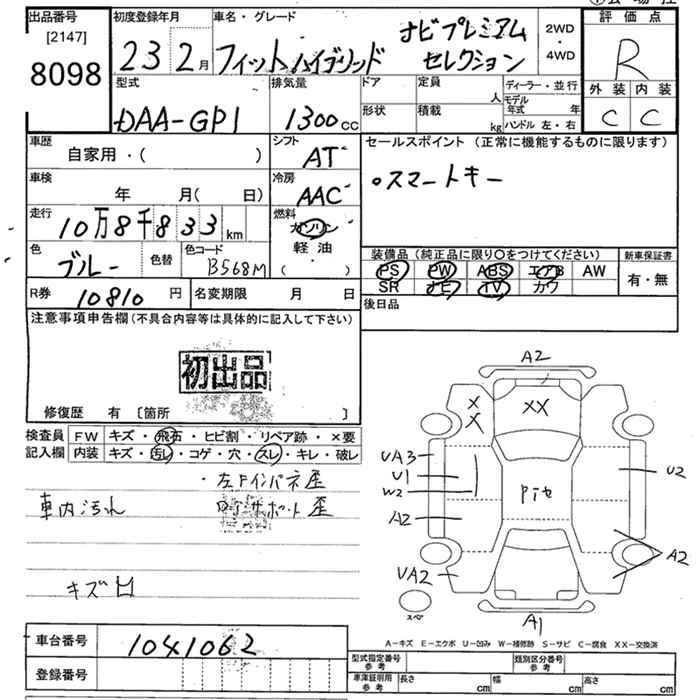 出品番号
[2147]
8098
初度登録年月
23 2月
車名・グレード
フィットハイブリッド
ナビプレミアム
セレクション
2WD
・
4WD
評価点
R
外装 内装
C C
型式
DAA-GP1
排気量
1300cc
ドア
形状
定員
人
積載
kg
ディーラー・並行
モデル年式 年
ハンドル 左・右
車歴
自家用・( )
シフト
AT
セールスポイント(正常に機能するものに限ります)
○スマートキー
車検
年 月( 日)
冷房
AAC
走行
10万8千833km
燃料
ガソリン
軽油
( )
色
ブルー
色替
色コード
B568M
装備品(純正品に限り○をつけてください)
PS PW ABS エアB AW
SR ナビ TV カワ
新車保証書
有・無
R券
10810円
名変期限 月 日
後日品
注意事項申告欄(不具合内容等は具体的に記入して下さい)
初出品
修復歴 有 〔箇所 〕
検査員
記入欄
FW キズ・飛石・ヒビ割・リペア跡・×要
内装 キズ・汚レ・コゲ・穴・スレ・キレ・破レ
・左Fインパネ歪
サポート歪
車内汚れ
キズ凹
A2
X
X
XX
UA3
U1
W2
A2
UA2
U2
A2
A1
スペア
A-キズ E-エクボ U-凹み W-補修跡 S-サビ C-腐食 XX-交換済
車台番号
1041062
登録番号
型式指定番号
参考
類別区分番号
参考
車庫証明用
参考
長さ cm
幅 cm
高さ cm